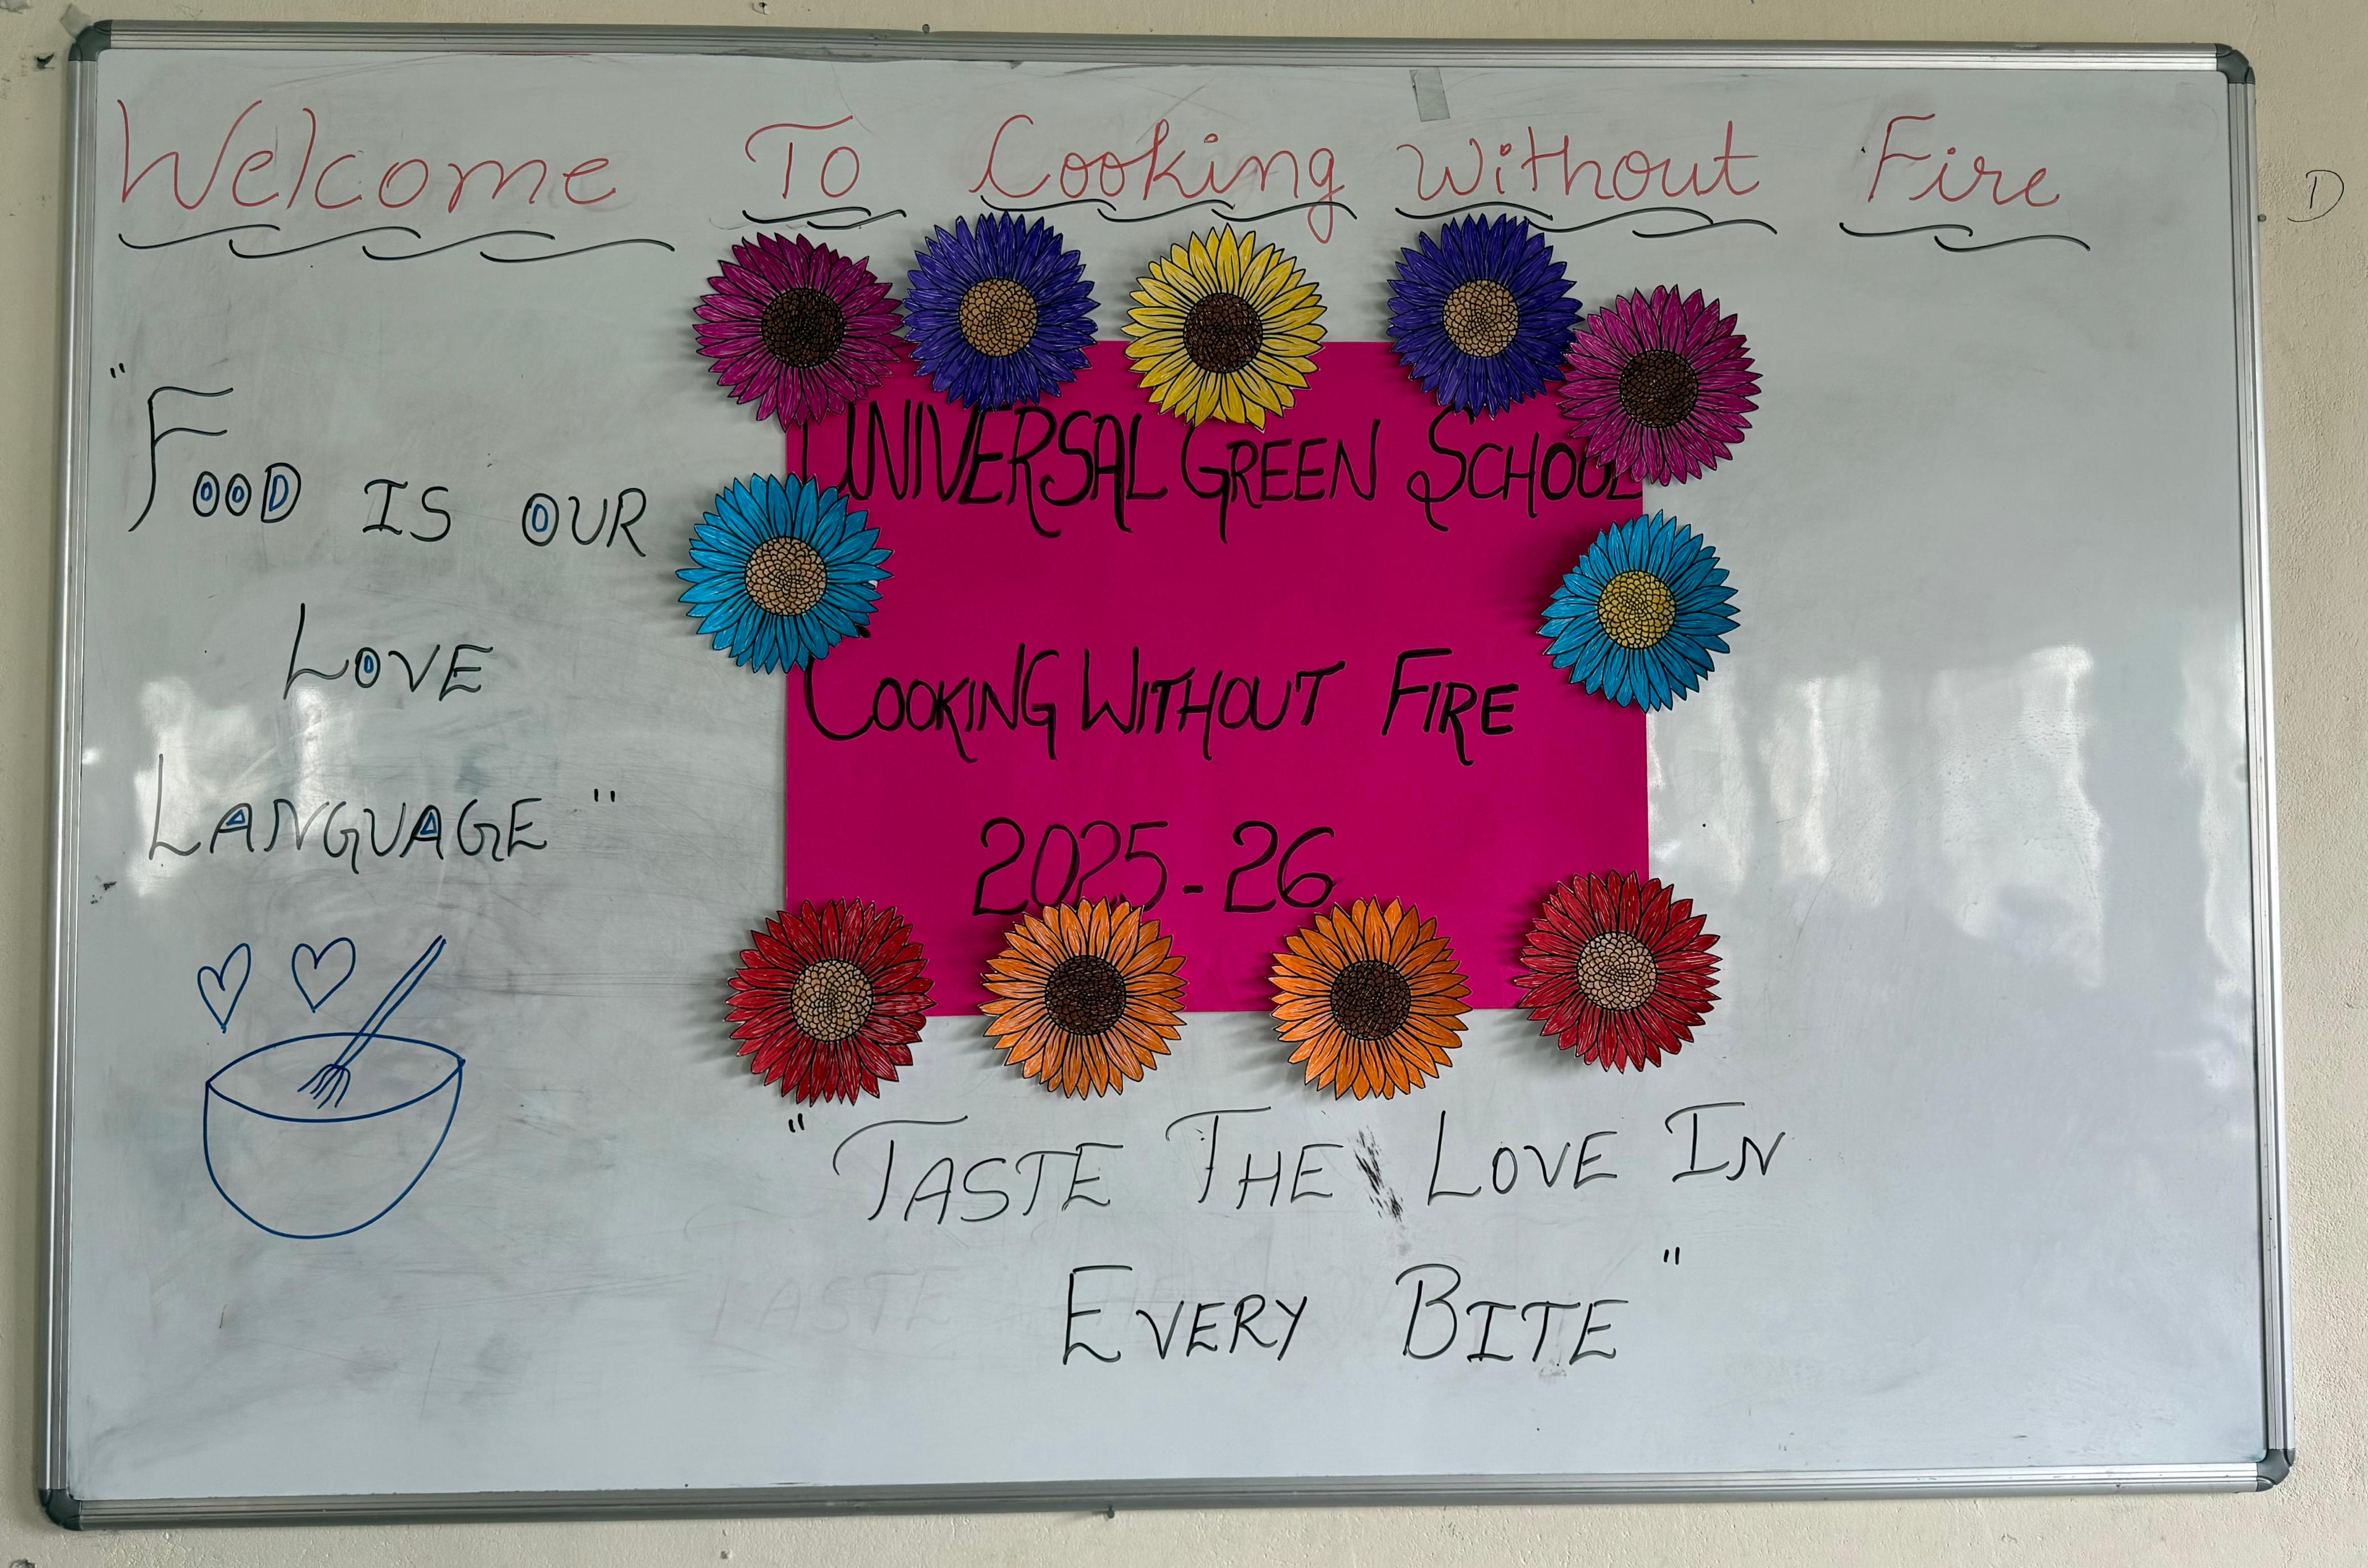 Welcome To Cooking Without Fire
"FOOD IS OUR
LOVE
LANGUAGE"
UNIVERSAL GREEN SCHOOL
COOKING WITHOUT FIRE
2025-26
"TASTE THE LOVE IN
EVERY BITE"
TASTE
D